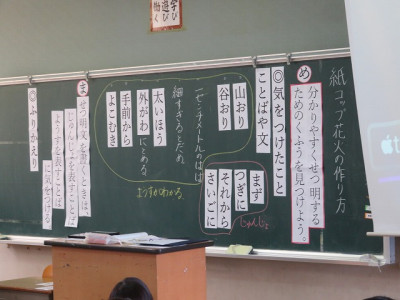 学び
遊び
働く
紙コップ花火の作り方
め
分かりやすくせつ明する
ためのくふうを見つけよう。
◎気をつけたこと
ことばや文
山おり
谷おり
一センチメートルのはば
細すぎるとだめ
太いほう
外がわにとめる
手前から
よこむき
ようすがわかる
まず
つぎに
それから
さいごに
じゅんじょ
ま
せつ明文を書くときは、
ようすを表すことば
に気をつける
◎ふりかえり